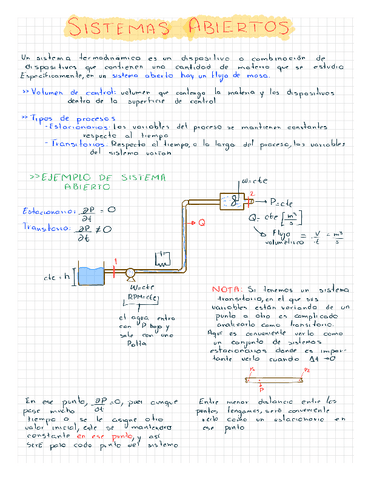 SISTEMAS ABIERTOS
Un sistema termodinámico es un dispositivo o combinación de
dispositivos que contienen una cantidad de materia que se estudia
Específicamente, en un sistema abierto hay un flujo de masa.
>> Volumen de control: volumen que contenga la materia y los dispositivos
dentro de la superficie de control
>> Tipos de procesos
- Estacionarios: Las variables del proceso se mantienen constantes
respecto al tiempo
- Transitorios: Respecto al tiempo, a lo largo del proceso, las variables
del sistema varían
>> EJEMPLO DE SISTEMA
ABIERTO
Estacionario: ∂P/∂t = 0
Transitorio: ∂P/∂t ≠ 0
w=cte
2
P=cte
Q=cte [m³/s]
Flujo volumétrico = V/t = m³/s
Q
1
cte = h
W=cte
RPM=cte
el agua entra
con P baja y
sale con una
P alta
NOTA: Si tenemos un sistema
transitorio, en el que sus
variables están variando de un
punto a otro es complicado
analizarlo como transitorio.
Aquí es conveniente verlo como
un conjunto de sistemas
estacionarios donde es impor-
tante verlo cuando Δt → 0
P₁
P₂
En ese punto, ∂P/∂t = 0, pues aunque
pase mucho
tiempo o se le asigne otro
valor inicial, este se mantendrá
constante en ese punto, y así
será para cada punto del sistema
Entre menor distancia entre los
puntos tengamos, será conveniente
verlo como un estacionario en
ese punto